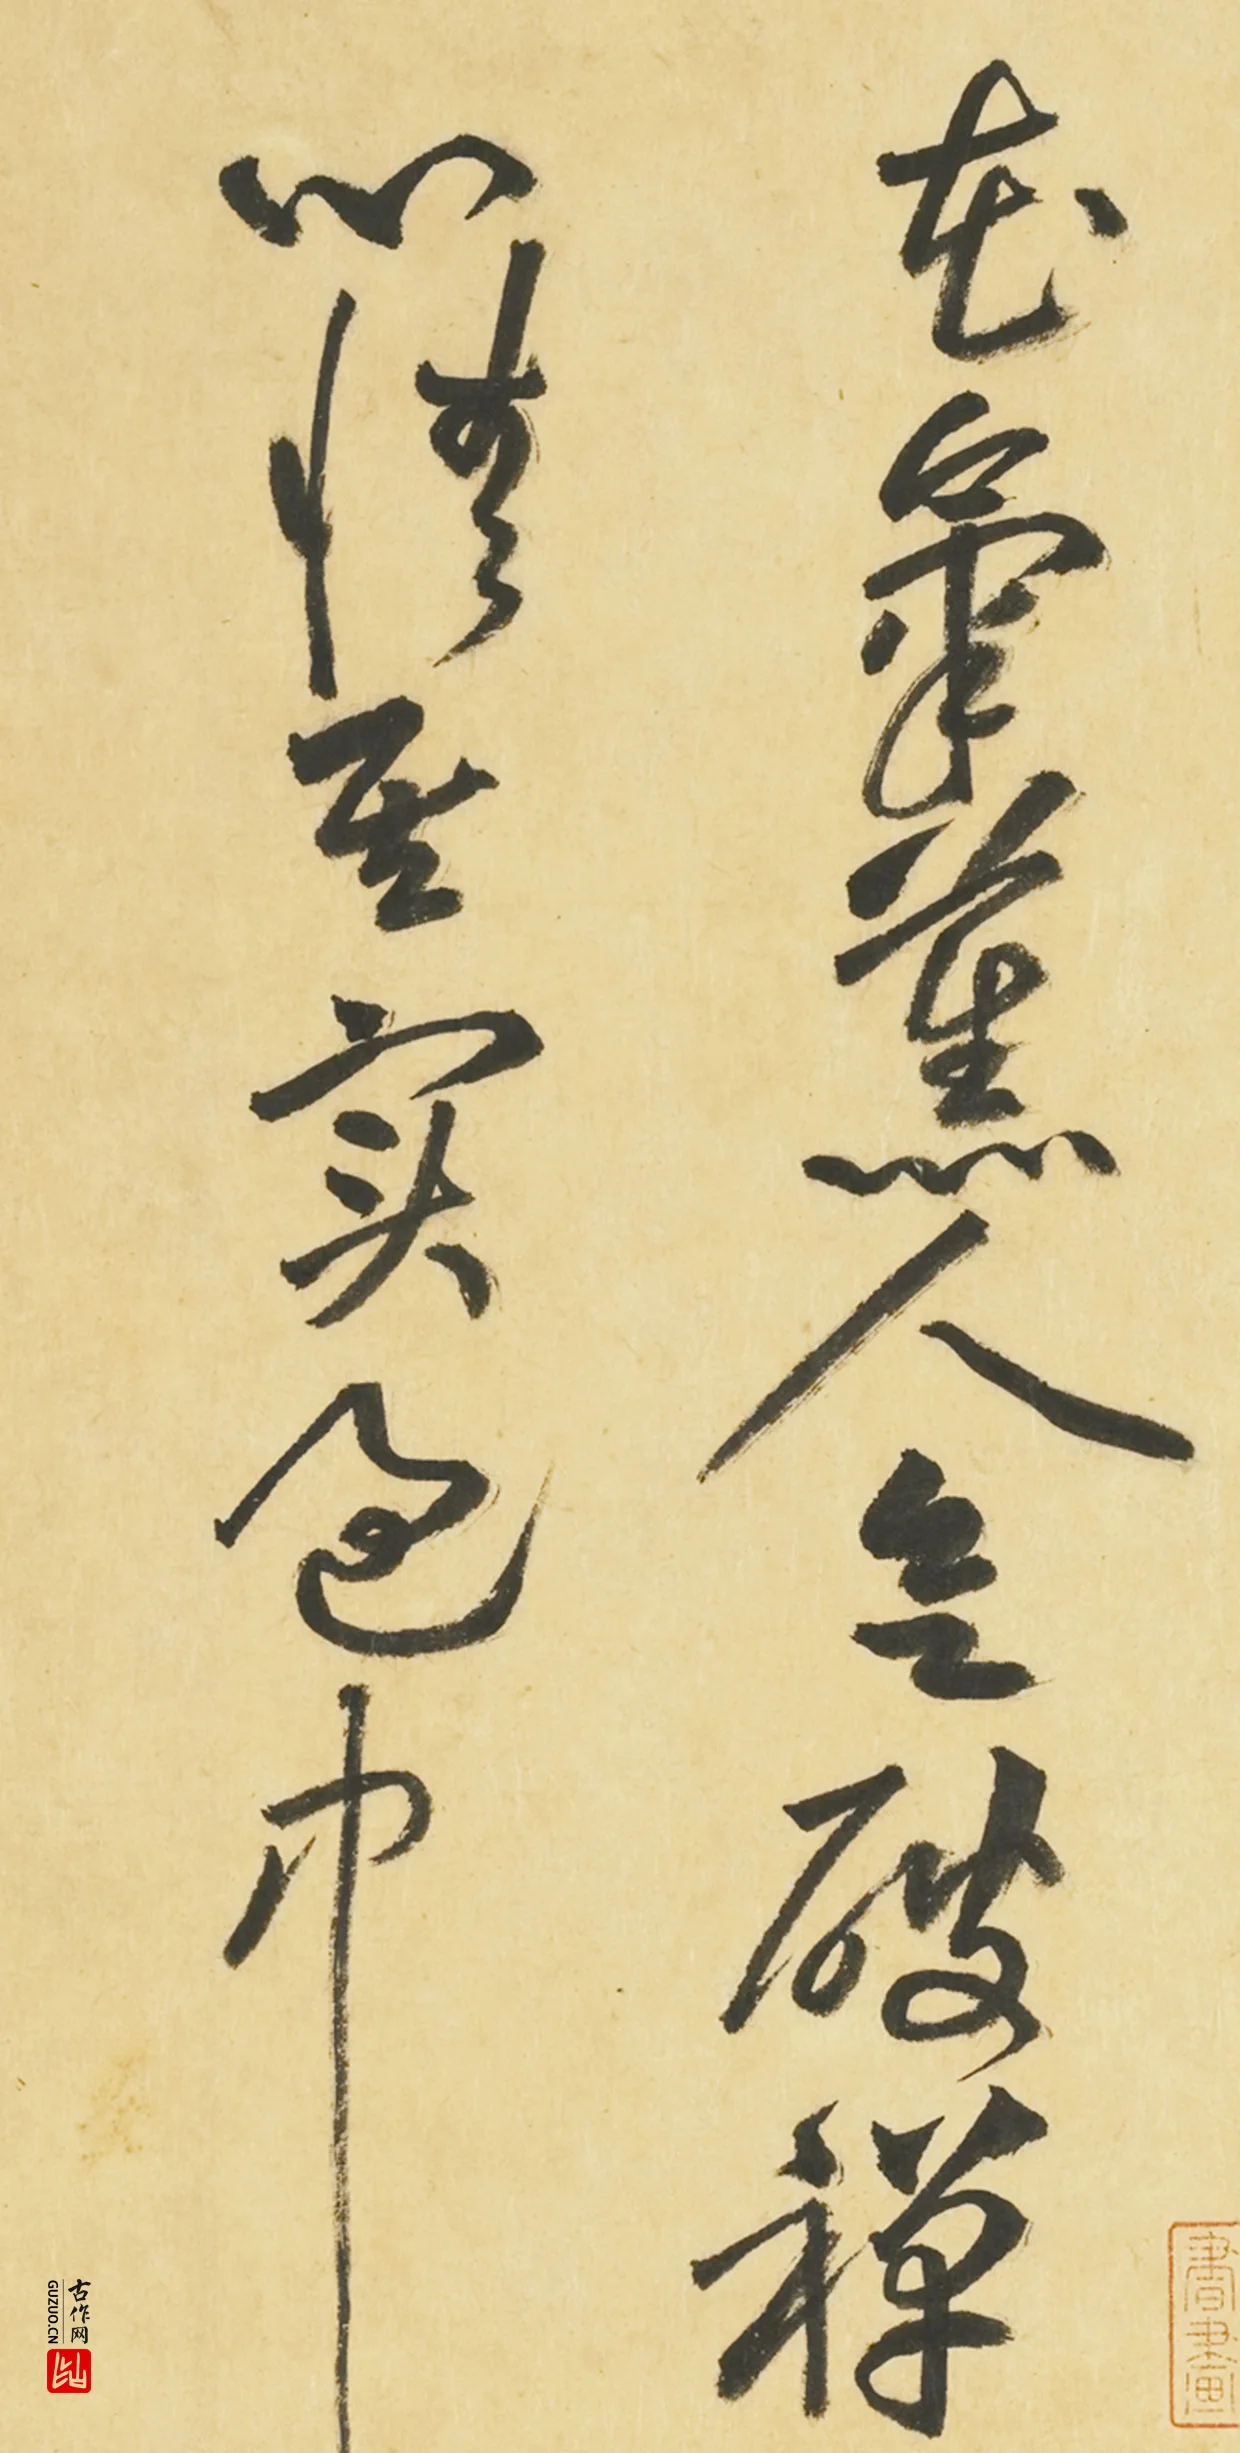 花氣薰人欲破禪
心情其實過中
古作网
GUZUO.CN